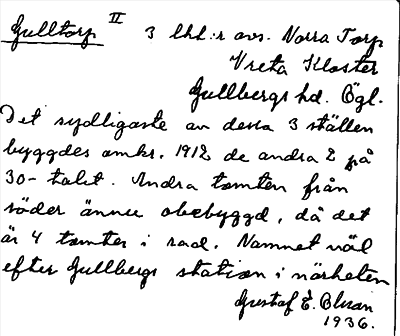 Gulltorp II 3 lht:r avs. Norra Torp
Vreta Kloster
Gullbergs hd. Ögl.
Det sydligaste av dessa 3 ställen
byggdes omkr. 1912 de andra 2 på
30-talet. Andra tomten från
söder ännu obebyggd, då det
är 4 tomter i rad. Namnet väl
efter Gullbergs station i närheten
Gustaf E. Olsson
1936.